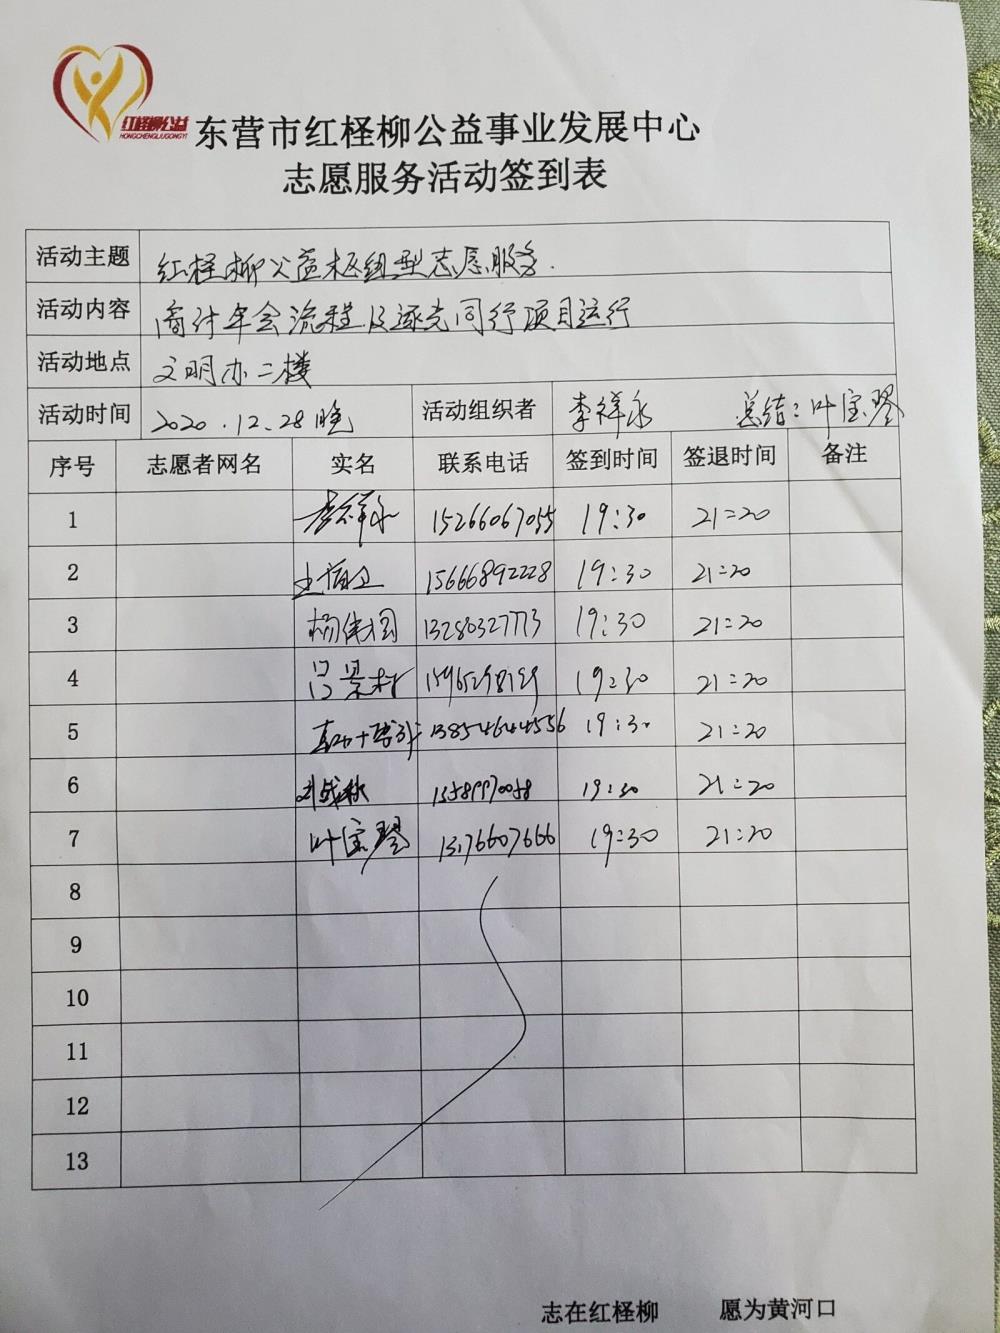 红柽柳公益
HONGCHENGLIUGONGYI
东营市红柽柳公益事业发展中心
志愿服务活动签到表
活动主题 红柽柳公益枢纽型志愿服务.
活动内容 商讨年会流程及逐光同行项目运行
活动地点 文明办二楼
活动时间 2020.12.28晚 活动组织者 李祥永 总结:叶宝琴
序号 志愿者网名 实名 联系电话 签到时间 签退时间 备注
1 李祥永 15266067055 19:30 21:20
2 15666892228 19:30 21:20
3 杨伟国 13280327773 19:30 21:20
4 吕景村 15965298129 19:30 21:20
5 13854644556 19:30 21:20
6 刘战秋 15589970058 19:30 21:20
7 叶宝琴 13176607666 19:30 21:20
8
9
10
11
12
13
志在红柽柳 愿为黄河口